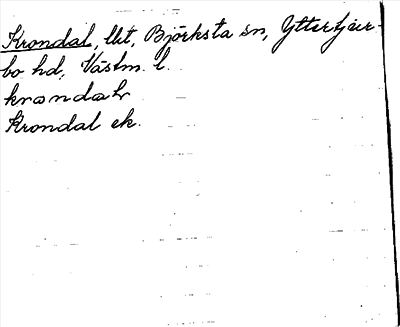 Krondal, lht, Björksta sn, Yttertjur-
bo hd, Västm. l.
krondal
Krondal ek.